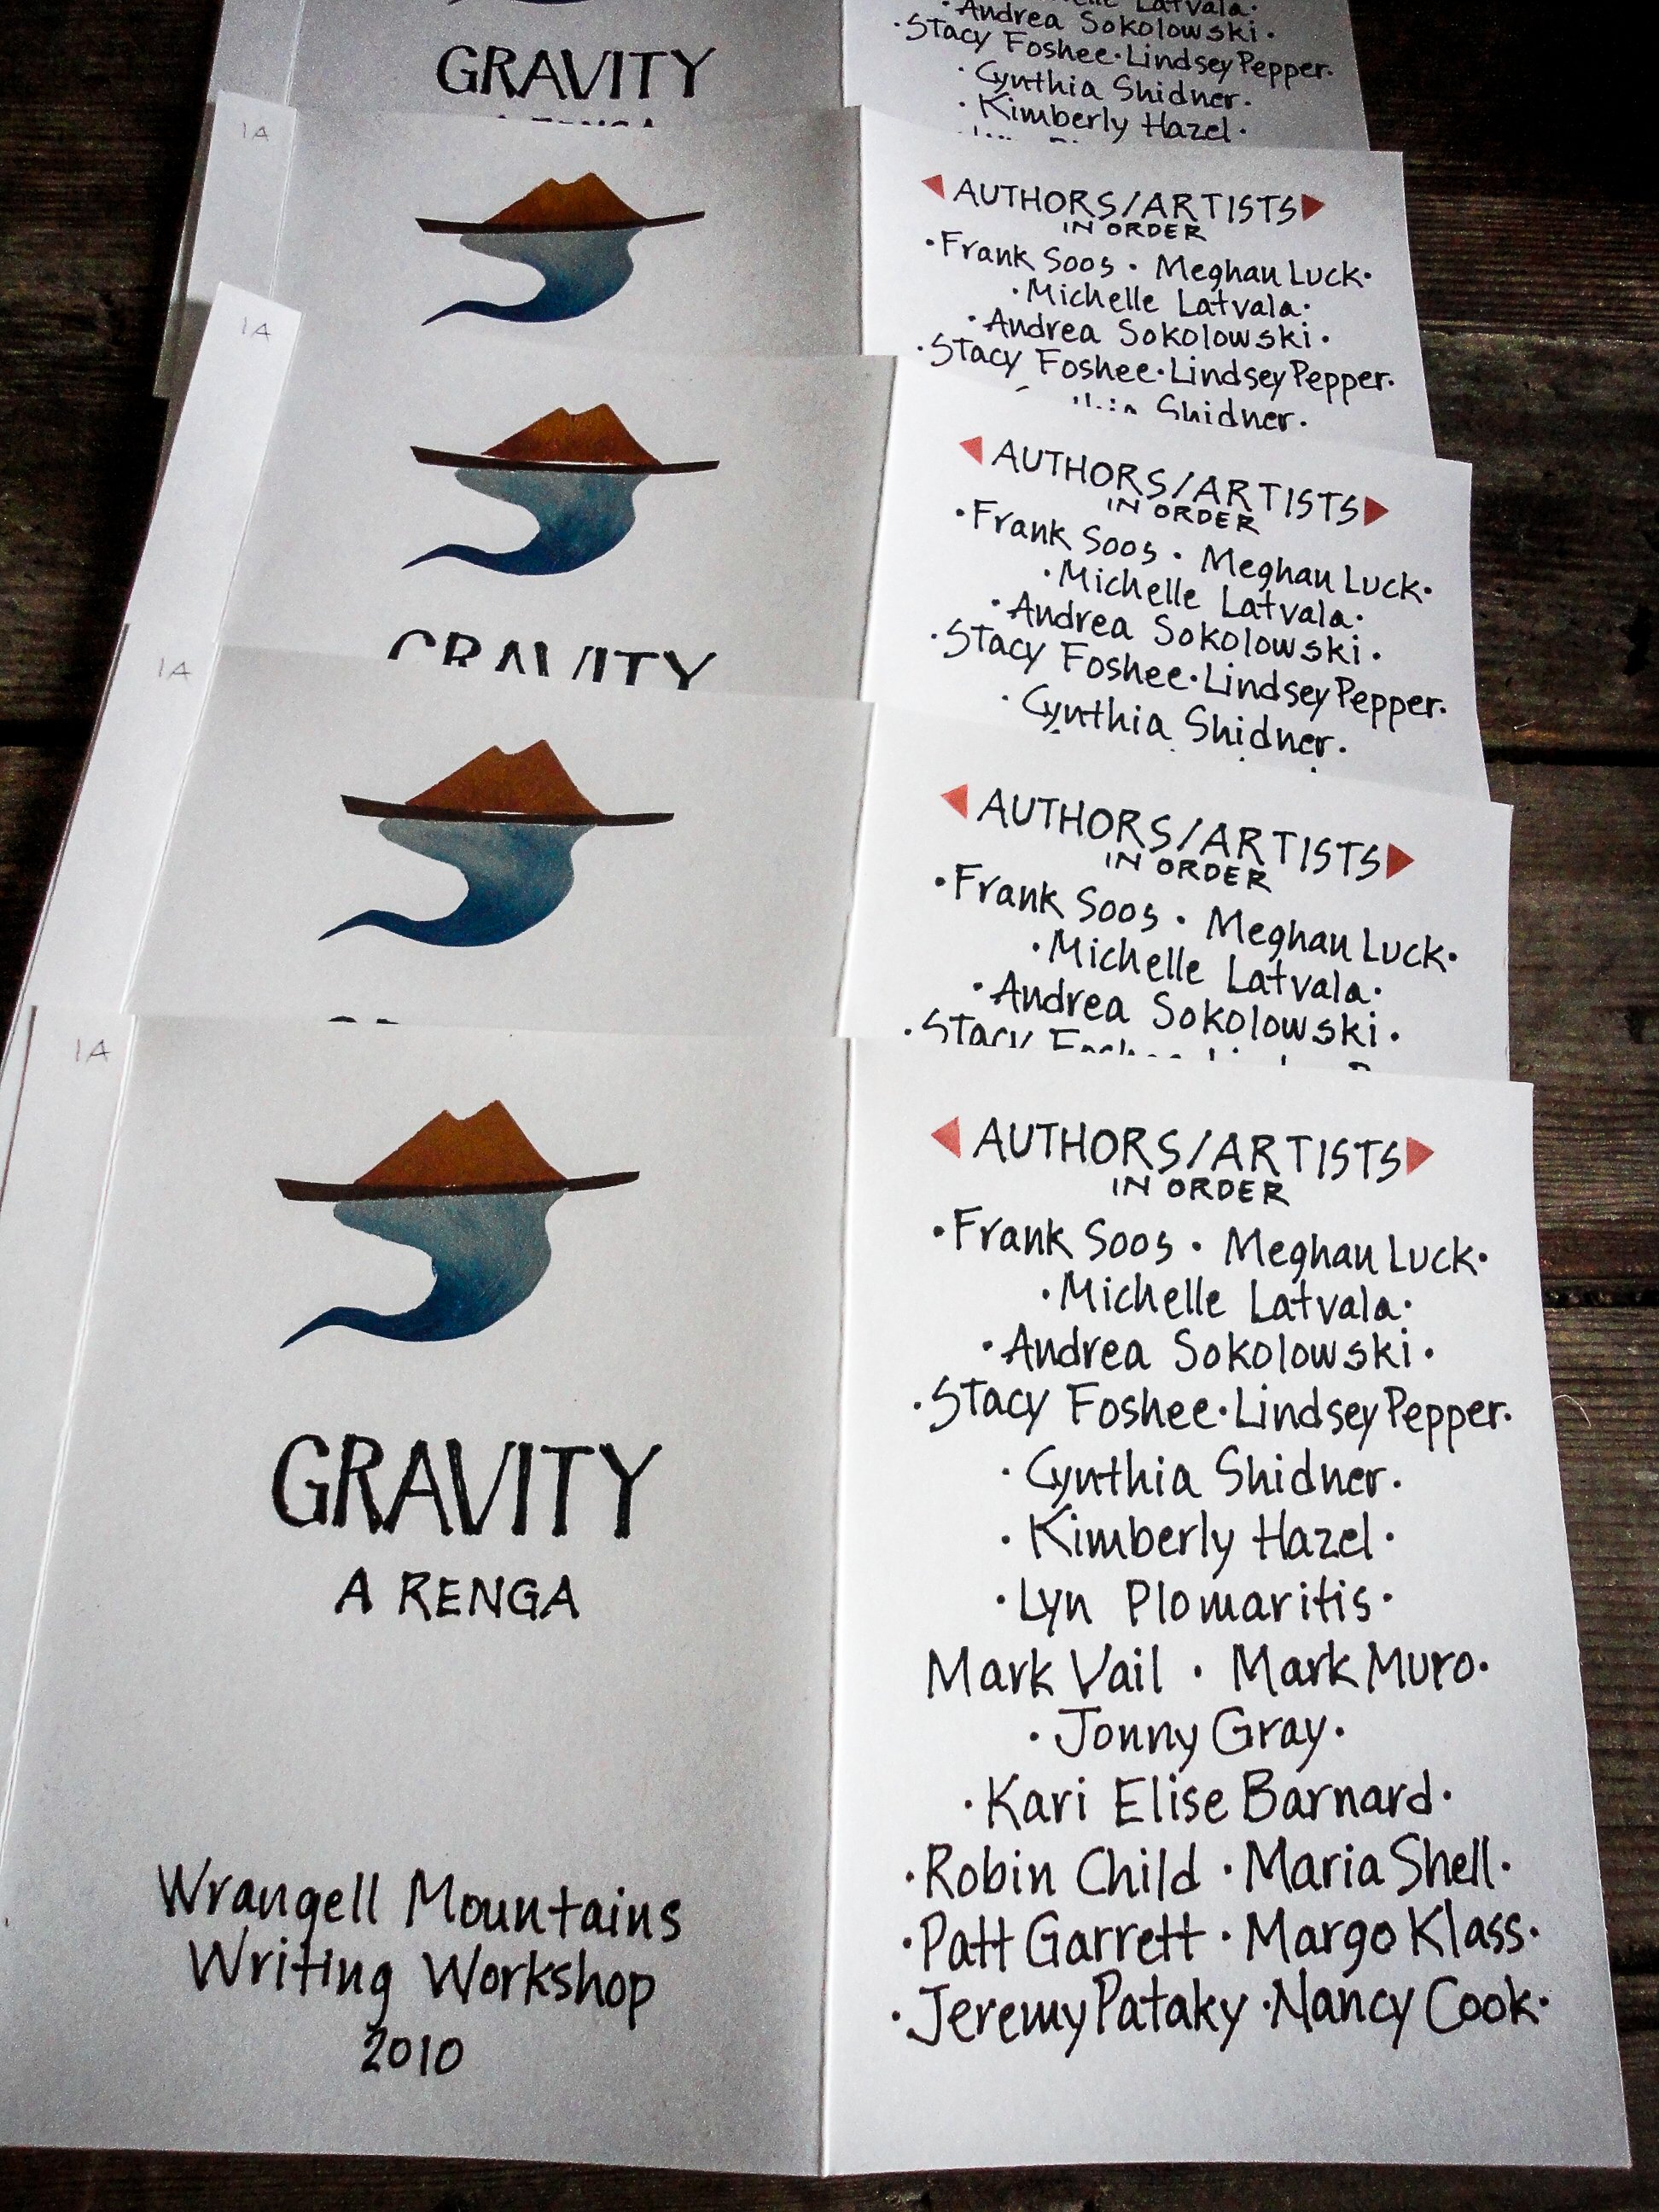 GRAVITY
Andrea Sokolowski ·
· Stacy Foshee · Lindsey Pepper ·
· Cynthia Shidner ·
· Kimberly Hazel ·
1A
AUTHORS/ARTISTS
IN ORDER
· Frank Soos · Meghan Luck ·
· Michelle Latvala ·
· Andrea Sokolowski ·
· Stacy Foshee · Lindsey Pepper ·
Shidner ·
1A
AUTHORS/ARTISTS
IN ORDER
· Frank Soos · Meghan Luck ·
· Michelle Latvala ·
· Andrea Sokolowski ·
· Stacy Foshee · Lindsey Pepper ·
· Cynthia Shidner ·
GRAVITY
1A
AUTHORS/ARTISTS
IN ORDER
· Frank Soos · Meghan Luck ·
· Michelle Latvala ·
· Andrea Sokolowski ·
· Stacy
1A
GRAVITY
A RENGA
Wrangell Mountains
Writing Workshop
2010
AUTHORS/ARTISTS
IN ORDER
· Frank Soos · Meghan Luck ·
· Michelle Latvala ·
· Andrea Sokolowski ·
· Stacy Foshee · Lindsey Pepper ·
· Cynthia Shidner ·
· Kimberly Hazel ·
· Lyn Plomaritis ·
Mark Vail · Mark Muro ·
· Jonny Gray ·
· Kari Elise Barnard ·
· Robin Child · Maria Shell ·
· Patt Garrett · Margo Klass ·
· Jeremy Pataky · Nancy Cook ·